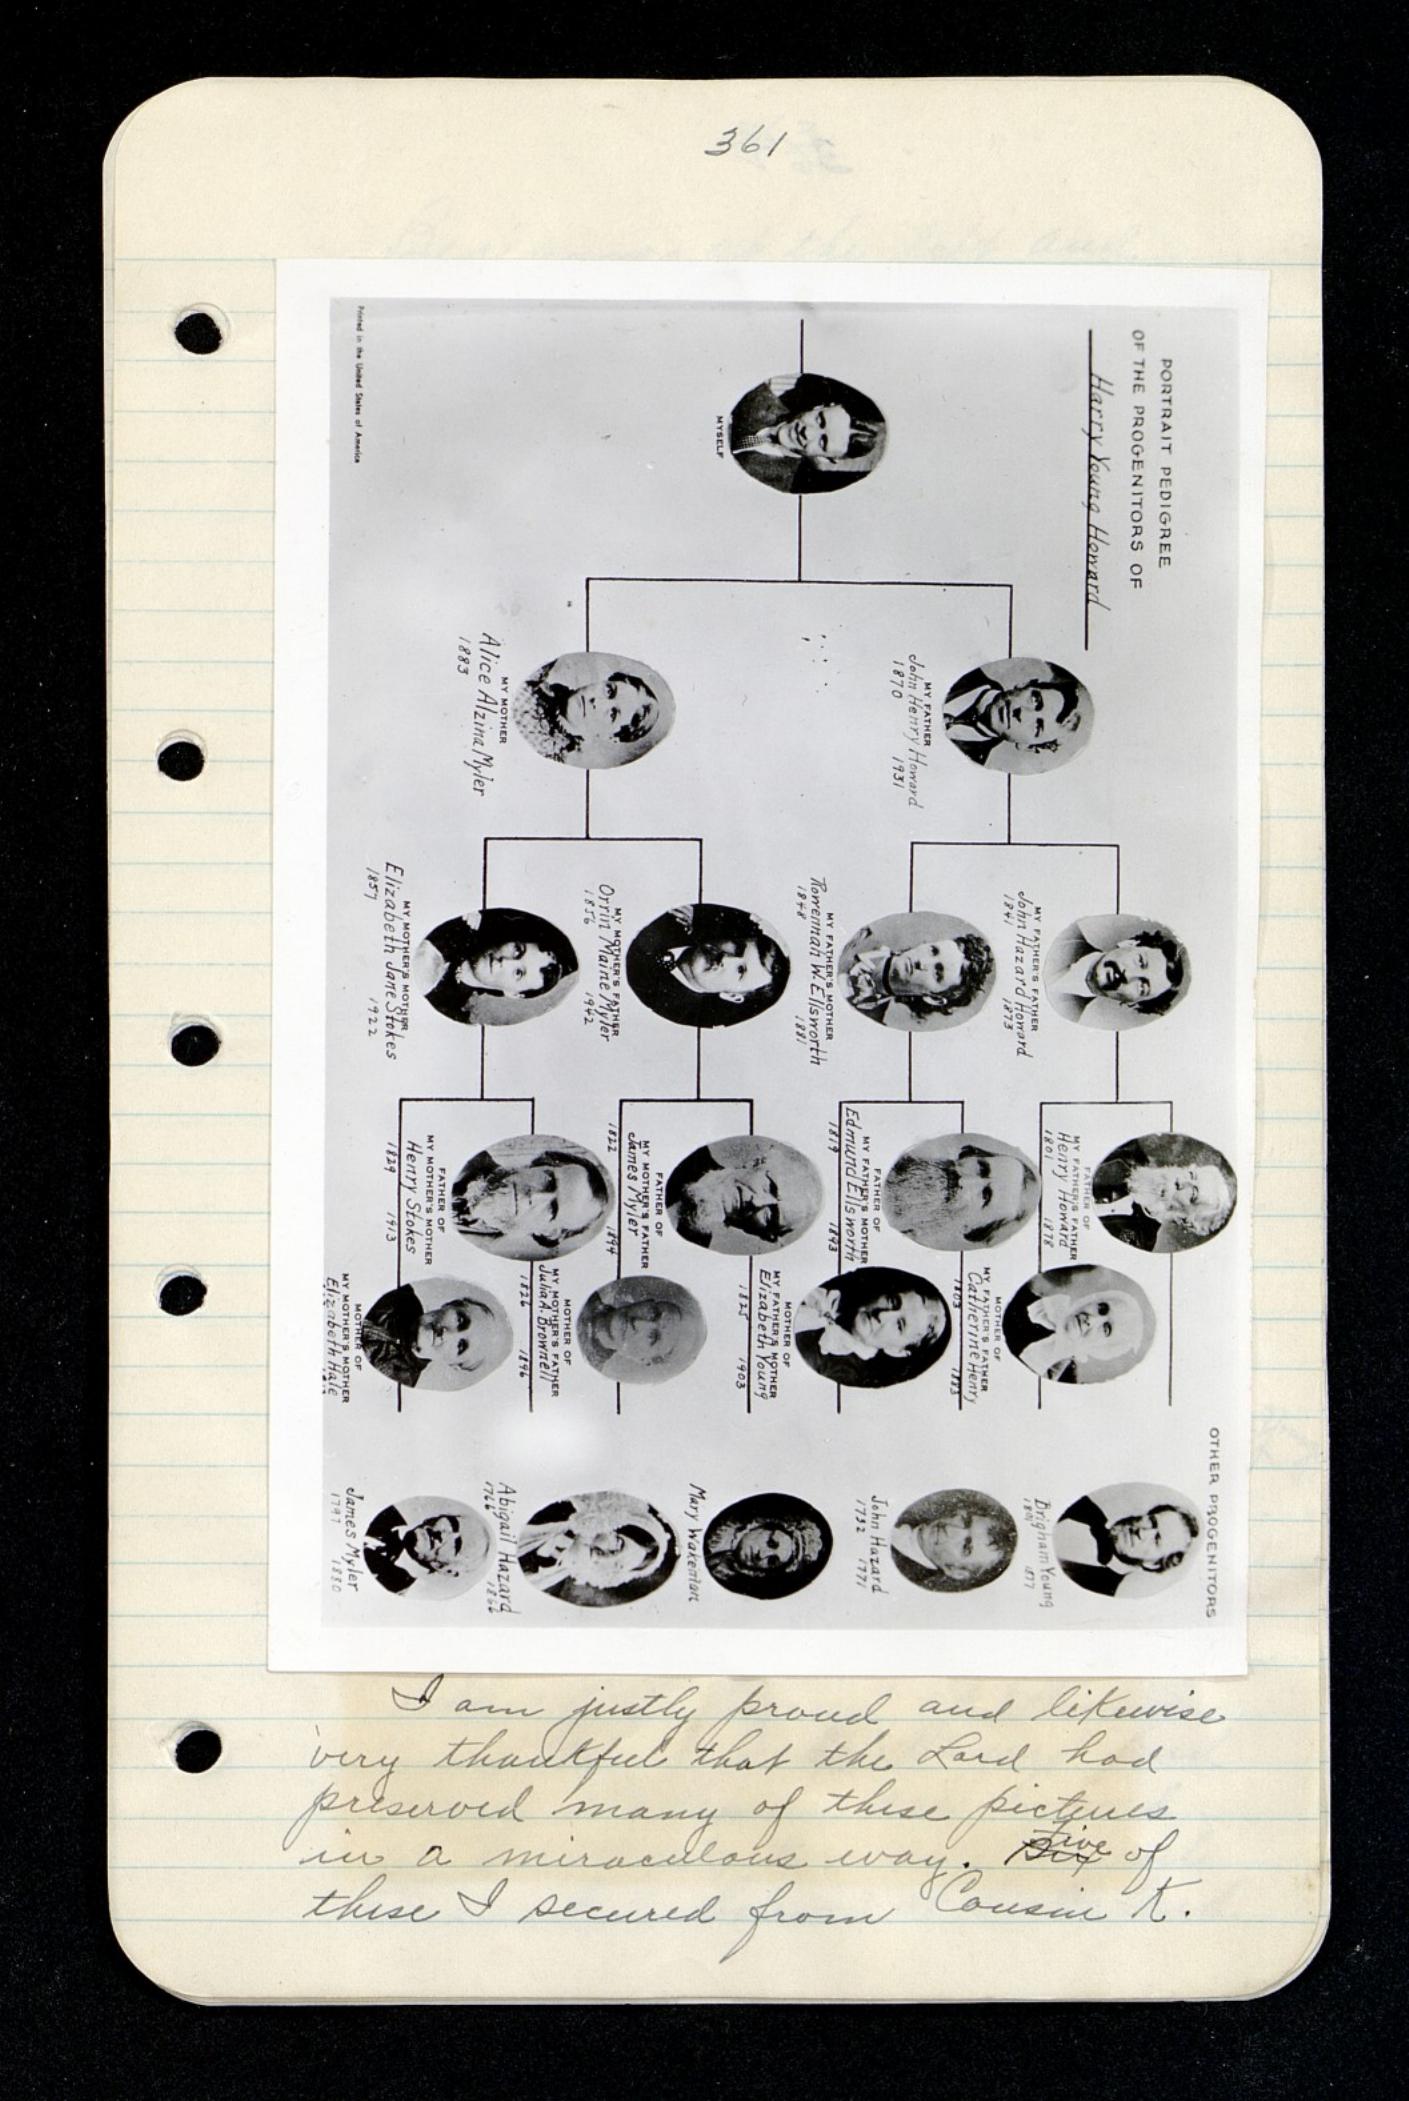 361
PORTRAIT PEDIGREE
OF THE PROGENITORS OF
Harry Young Howard
MYSELF
MY FATHER
John Henry Howard
1870 1931
MY MOTHER
Alice Alzina Myler
1883
MY FATHER'S FATHER
John Hazard Howard
1841 1873
MY FATHER'S MOTHER
Rowennah W. Ellsworth
1848 1881
MY MOTHER'S FATHER
Orrin Maine Myler
1856 1942
MY MOTHER'S MOTHER
Elizabeth Jane Stokes
1857 1922
FATHER OF
MY FATHER'S FATHER
Henry Howard
1801 1878
MOTHER OF
MY FATHER'S FATHER
Catherine Henry
1803 1883
FATHER OF
MY FATHER'S MOTHER
Edmund Ellsworth
1819 1893
MOTHER OF
MY FATHER'S MOTHER
Elizabeth Young
1825 1903
FATHER OF
MY MOTHER'S FATHER
James Myler
1822 1894
MOTHER OF
MY MOTHER'S FATHER
Julia A. Brownell
1826 1896
FATHER OF
MY MOTHER'S MOTHER
Henry Stokes
1829 1913
MOTHER OF
MY MOTHER'S MOTHER
Elizabeth Hale
OTHER PROGENITORS
Brigham Young
1801 1877
John Hazard
1732 1771
Mary Wakenian
Abigail Hazard
1766 1866
James Myler
1797 1880
Printed in the United States of America
I am justly proud and likewise
very thankful that the Lord had
preserved many of these pictures
in a miraculous way. Five of
these I secured from Cousin K.